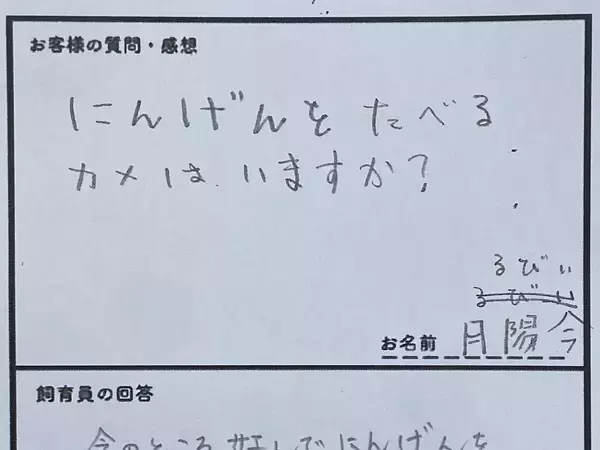 お客様の質問・感想
にんげんをたべる
カメは、いますか?
るびい
るびい
お名前 月陽今
飼育員の回答
今のところ好んでにんげんを